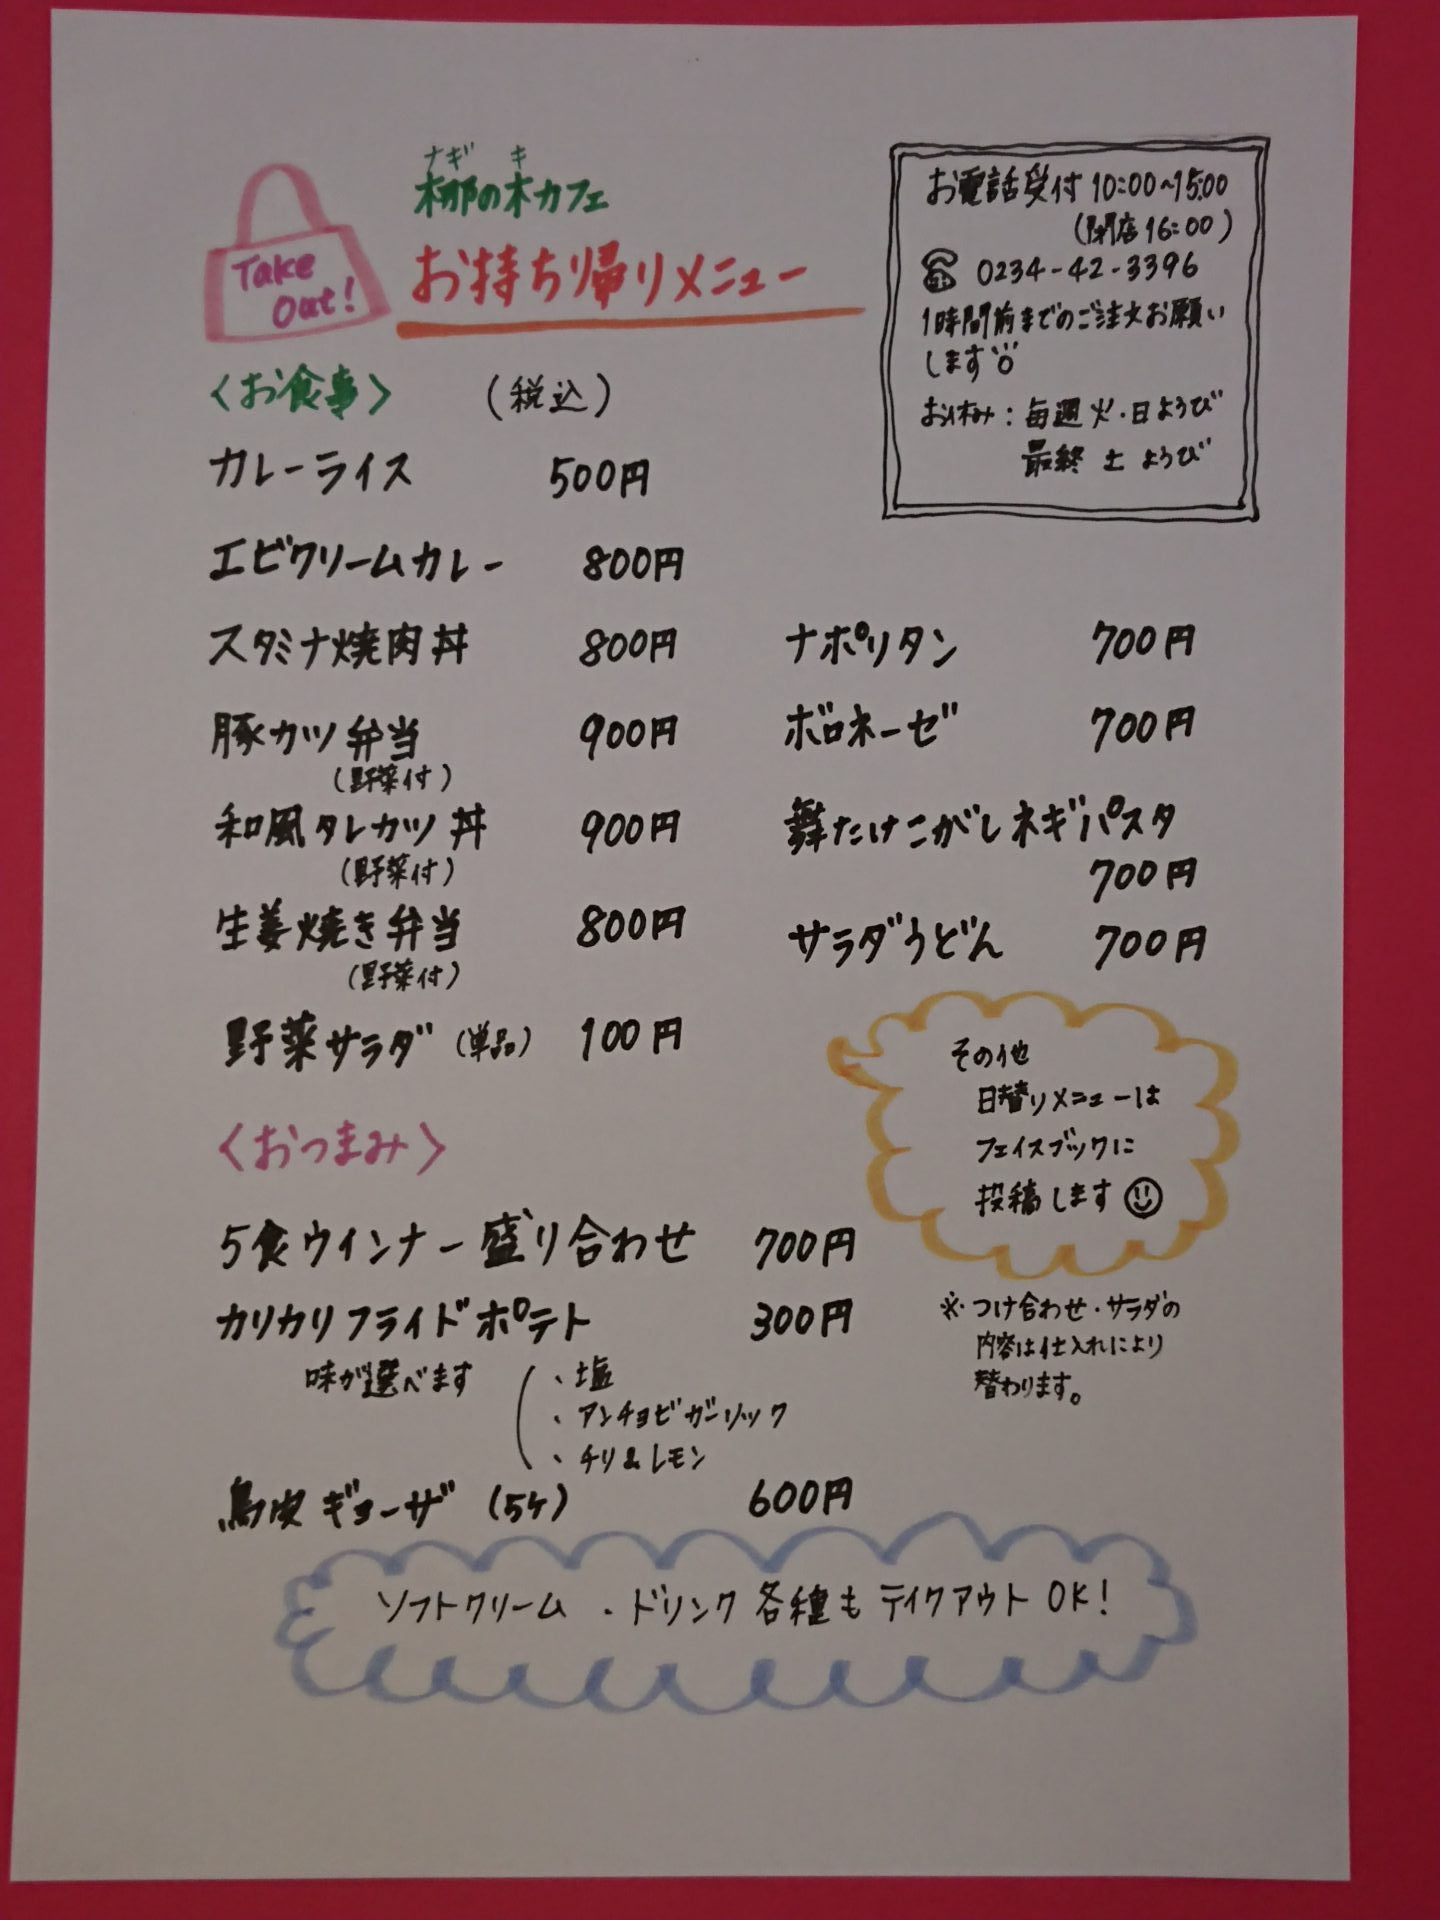 Take
Out!
ナギ キ
梛の木カフェ
お持ち帰りメニュー
お電話受付 10:00~15:00
(閉店16:00)
☎ 0234-42-3396
1時間前までのご注文お願い
します
お休み:毎週火・日ようび
最終 土 ようび
<お食事> (税込)
カレーライス 500円
エビクリームカレー 800円
スタミナ焼肉丼 800円
豚カツ弁当 900円
(野菜付)
和風タレカツ丼 900円
(野菜付)
生姜焼き弁当 800円
(野菜付)
野菜サラダ(単品) 100円
ナポリタン 700円
ボロネーゼ 700円
舞たけこがしネギパスタ
700円
サラダうどん 700円
その他
日替りメニューは
フェイスブックに
投稿します☺
<おつまみ>
5食ウインナー盛り合わせ 700円
カリカリフライドポテト 300円
味が選べます
・塩
・アンチョビガーリック
・チリ&レモン
鳥皮ギョーザ (5ケ) 600円
※・つけ合わせ・サラダの
内容は仕入れにより
替わります。
ソフトクリーム・ドリンク各種もテイクアウトOK!